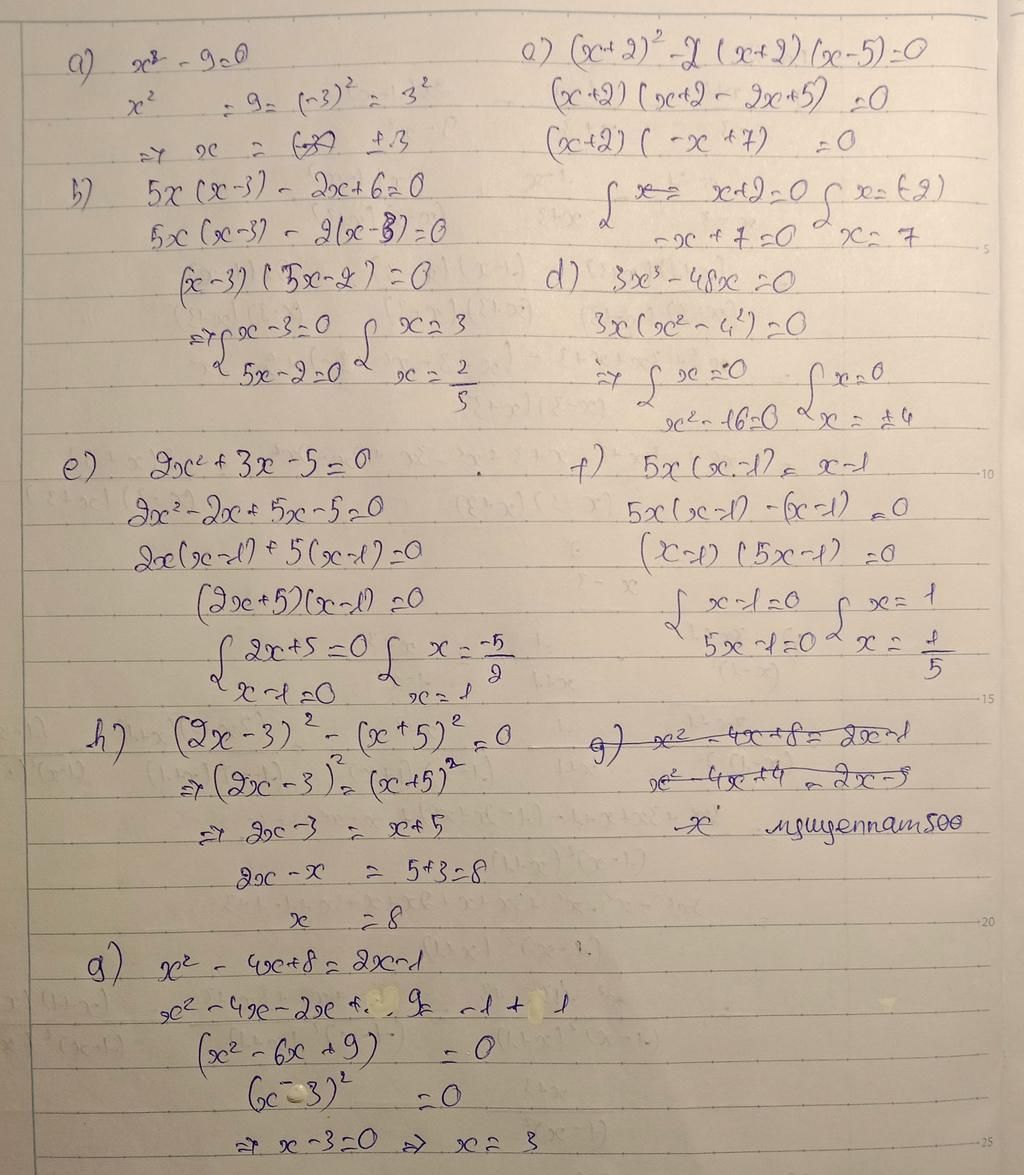 a) x² - 9 = 0
x² = 9 = (-3)² = 3²
=> x = ±3
b) 5x(x-3) - 2x+6=0
5x(x-3) - 2(x-3)=0
(x-3)(5x-2)=0
=> { x-3=0 { x=3
5x-2=0 x = 2/5
c) (x+2)² - 2(x+2)(x-5)=0
(x+2)(x+2 - 2x+5) =0
(x+2)(-x+7) =0
{ x= x+2=0 { x=(-2)
-x+7=0 x=7
d) 3x³ - 48x =0
3x(x² - 4²)=0
=> { x=0 { x=0
x² - 16=0 x = ±4
e) 2x² + 3x - 5=0
2x² - 2x + 5x - 5=0
2x(x-1) + 5(x-1)=0
(2x+5)(x-1) =0
{ 2x+5=0 { x = -5/2
x-1=0 x=1
f) 5x(x-1) = x-1
5x(x-1) - (x-1) =0
(x-1)(5x-1) =0
{ x-1=0 { x=1
5x-1=0 x = 1/5
h) (2x-3)² - (x+5)² =0
=> (2x-3)² = (x+5)²
=> 2x-3 = x+5
2x - x = 5+3=8
x =8
g) x² - 4x+8 = 2x-1
x² - 4x+4 = 2x-5
x nguyennam500
g) x² - 4x+8 = 2x-1
x² - 4x - 2x + 9= -1 + 1
(x² - 6x + 9) =0
(x-3)² =0
=> x-3=0 => x=3
5
10
15
20
25